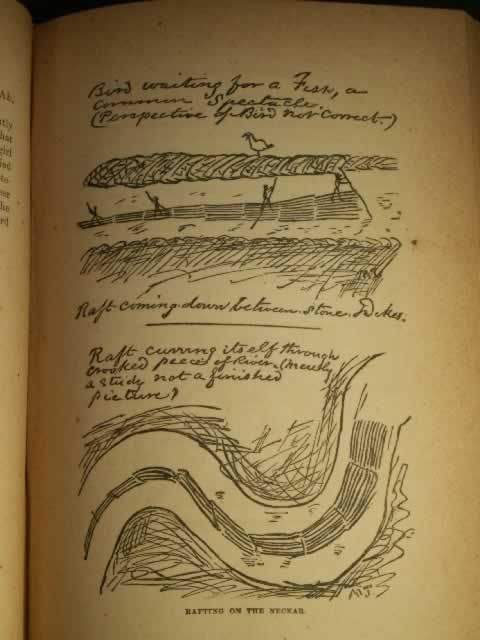 hat
girl
to-
Bird waiting for a Fish, a
common Spectacle.
(Perspective of Bird not correct.)
Raft coming down between Stone Dikes.
Raft curving itself through
crooked peece of River. (Merely
a study not a finished
picture)
M.T.
RAFTING ON THE NECKAR.